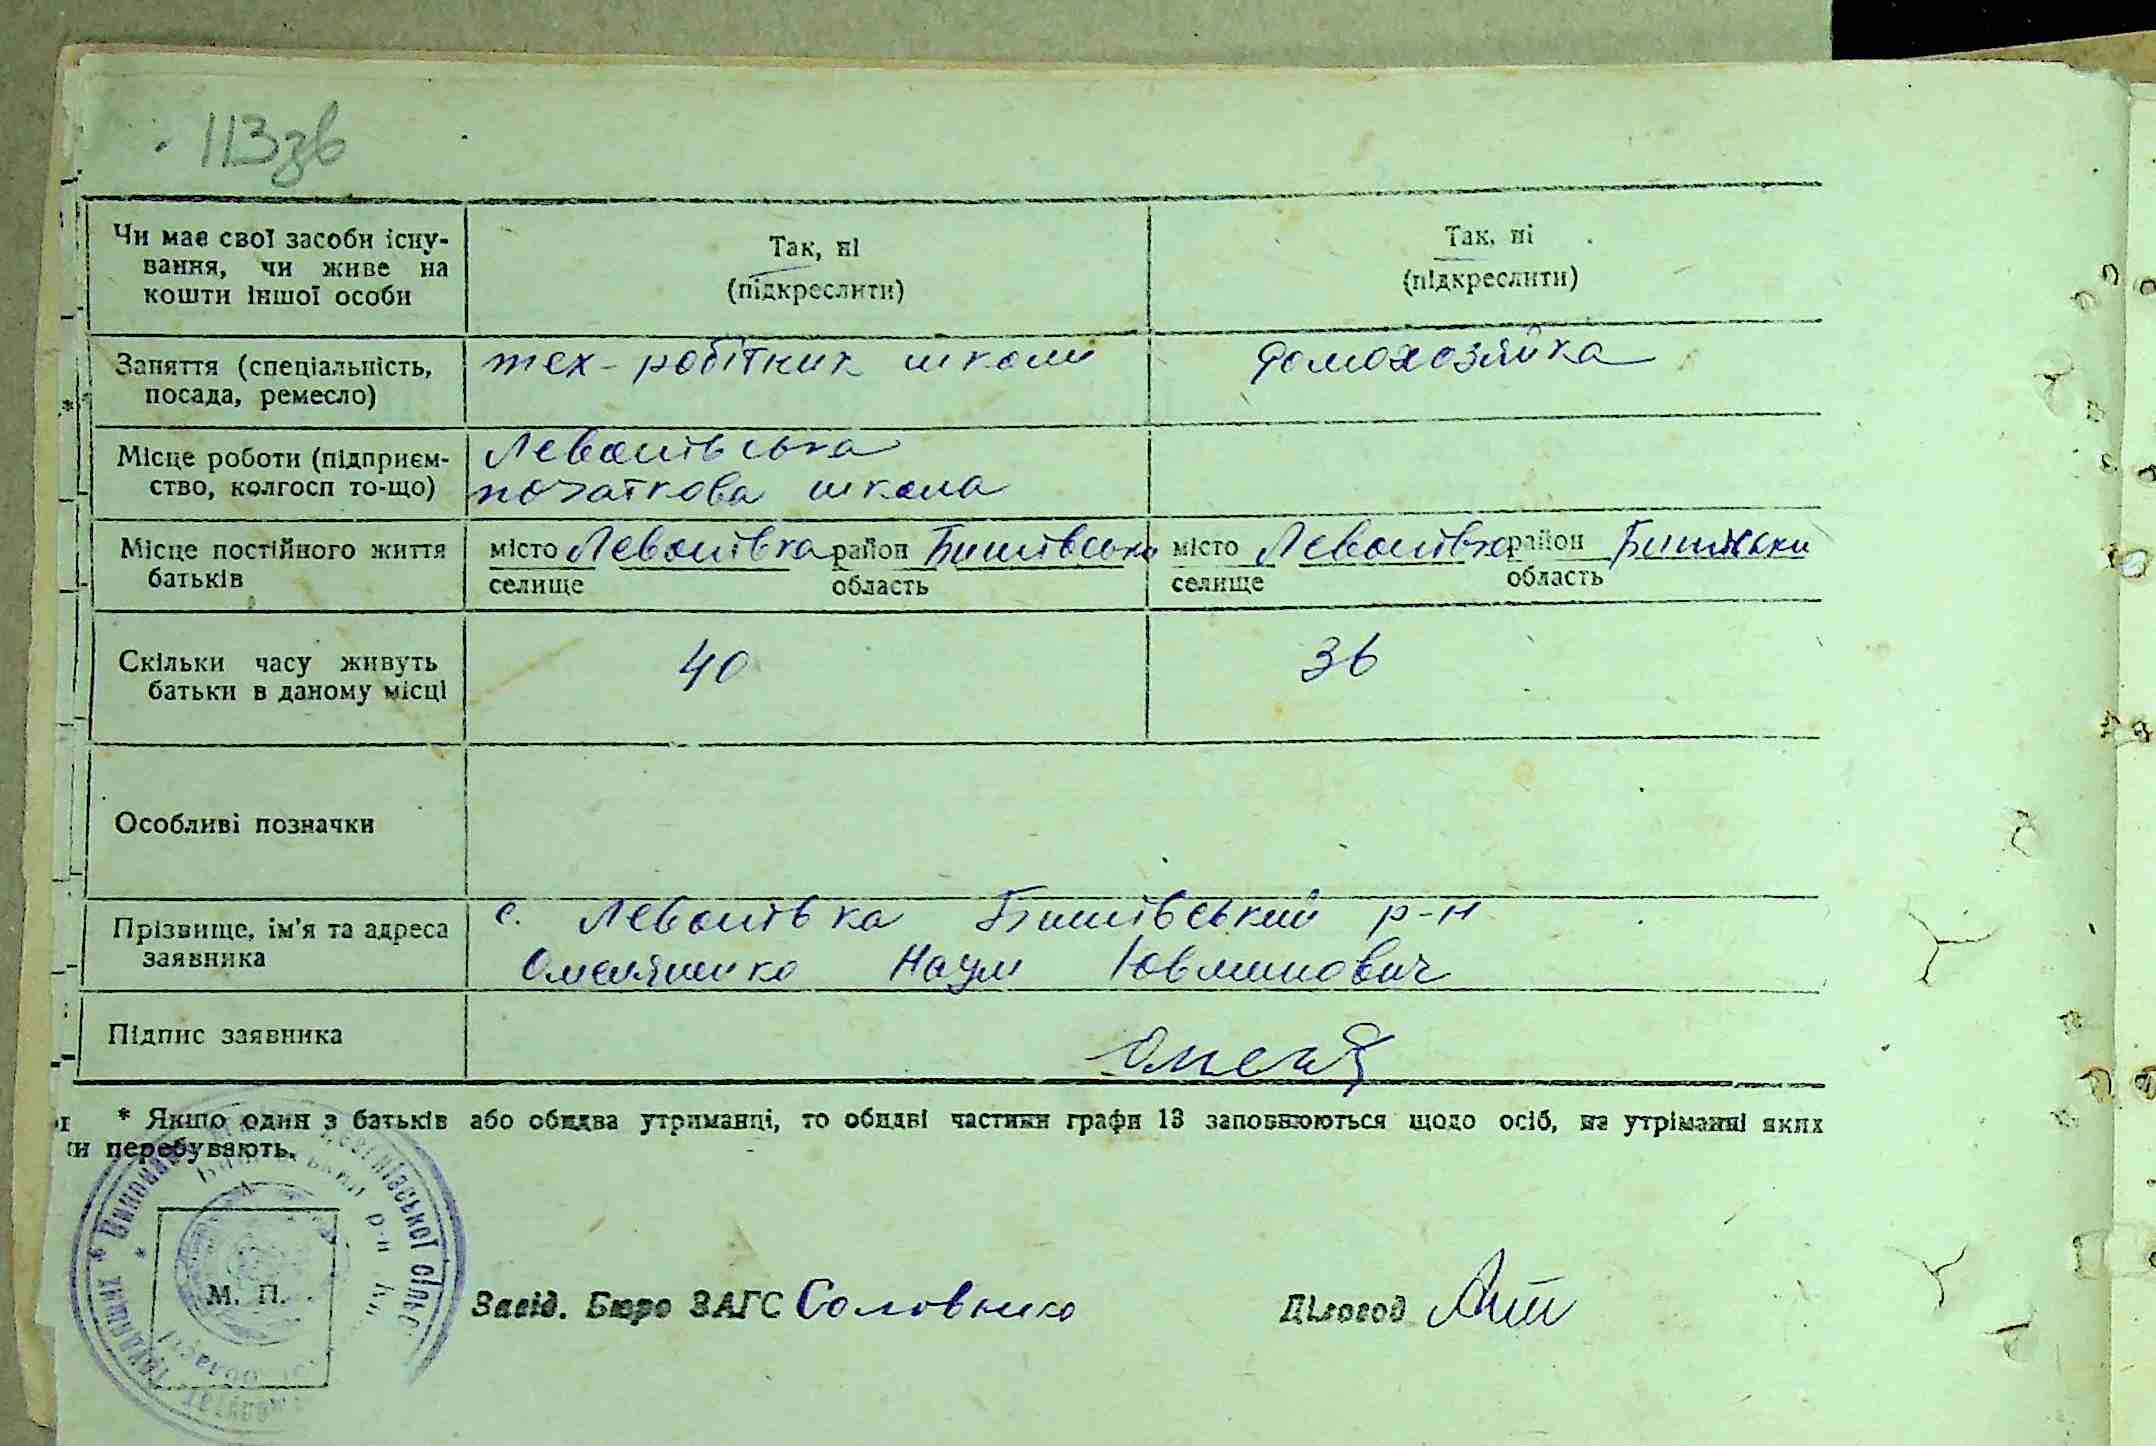 113зв
Чи має свої засоби існу-
вання, чи живе на
кошти іншої особи
Так, ні
(підкреслити)
Так, ні
(підкреслити)
Заняття (спеціальність,
посада, ремесло)
тех-робітник школи
домохозяйка
Місце роботи (підприєм-
ство, колгосп то-що)
Леваністська
початкова школа
Місце постійного життя
батьків
місто район
селище область
місто район
селище область
Скільки часу живуть
батьки в даному місці
40
36
Особливі позначки
Прізвище, ім'я та адреса
заявника
с. Бишівський р-н
Омеляненко Наум
Підпис заявника
* Якщо один з батьків або обидва утриманці, то обидві частини графи 13 заповнюються щодо осіб, на утріманні яких
перебувають.
М. П.
Завід. Бюро ЗАГС
Діловод